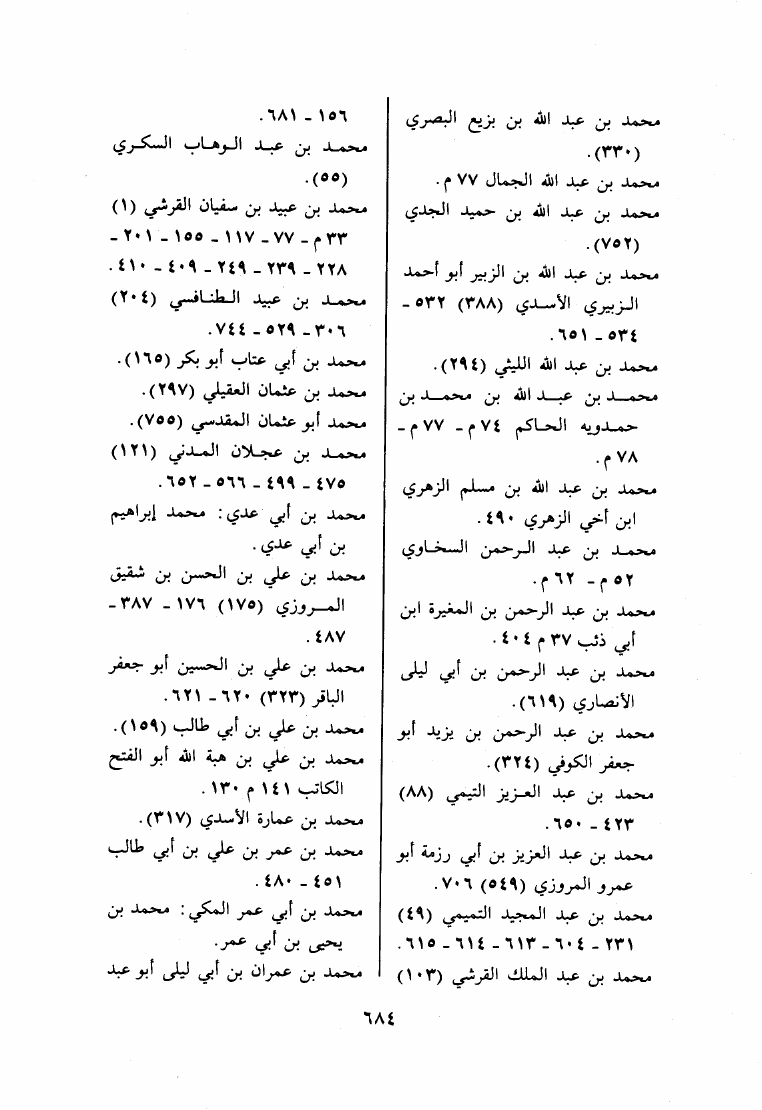 محمد بن عبد الله بن بزيع البصري
(٣٣٠).
محمد بن عبد الله الجمال ٧٧ م.
محمد بن عبد الله بن حميد الجدي
(٧٥٢).
محمد بن عبد الله بن الزبير أبو أحمد
الزبيري الأسدي (٣٨٨) ٥٣٢ -
٥٣٤ - ٦٥١.
محمد بن عبد الله الليثي (٢٩٤).
محمد بن عبد الله بن محمد بن
حمدويه الحاكم ٧٤ م - ٧٧ م -
٧٨ م.
محمد بن عبد الله بن مسلم الزهري
ابن أخي الزهري ٤٩٠.
محمد بن عبد الرحمن السخاوي
٥٢ م - ٦٢ م.
محمد بن عبد الرحمن بن المغيرة ابن
أبي ذئب ٣٧ م ٤٠٤.
محمد بن عبد الرحمن بن أبي ليلى
الأنصاري (٦١٩).
محمد بن عبد الرحمن بن يزيد أبو
جعفر الكوفي (٣٢٤).
محمد بن عبد العزيز التيمي (٨٨)
٤٢٣ - ٦٥٠.
محمد بن عبد العزيز بن أبي رزمة أبو
عمرو المروزي (٥٤٩) ٧٠٦.
محمد بن عبد المجيد التميمي (٤٩)
٢٣١ - ٦٠٤ - ٦١٣ - ٦١٤ - ٦١٥.
محمد بن عبد الملك القرشي (١٠٣)
١٥٦ - ٦٨١.
محمد بن عبد الوهاب السكري
(٥٥).
محمد بن عبيد بن سفيان القرشي (١)
٣٣ م - ٧٧ - ١١٧ - ١٥٥ - ٢٠١ -
٢٢٨ - ٢٣٩ - ٢٤٩ - ٤٠٩ - ٤١٠.
محمد بن عبيد الطنافسي (٢٠٤)
٣٠٦ - ٥٢٩ - ٧٤٤.
محمد بن أبي عتاب أبو بكر (١٦٥).
محمد بن عثمان العقيلي (٢٩٧).
محمد أبو عثمان المقدسي (٧٥٥).
محمد بن عجلان المدني (١٢١)
٤٧٥ - ٤٩٩ - ٥٦٦ - ٦٥٢.
محمد بن أبي عدي: محمد إبراهيم
بن أبي عدي.
محمد بن علي بن الحسن بن شقيق
المروزي (١٧٥) ١٧٦ - ٣٨٧ -
٤٨٧.
محمد بن علي بن الحسين أبو جعفر
الباقر (٣٢٣) ٦٢٠ - ٦٢١.
محمد بن علي بن أبي طالب (١٥٩).
محمد بن علي بن هبة الله أبو الفتح
الكاتب ١٤١ م ١٣٠.
محمد بن عمارة الأسدي (٣١٧).
محمد بن عمر بن علي بن أبي طالب
٤٥١ - ٤٨٠.
محمد بن أبي عمر المكي: محمد بن
يحيى بن أبي عمر.
محمد بن عمران بن أبي ليلى أبو عبد
٦٨٤